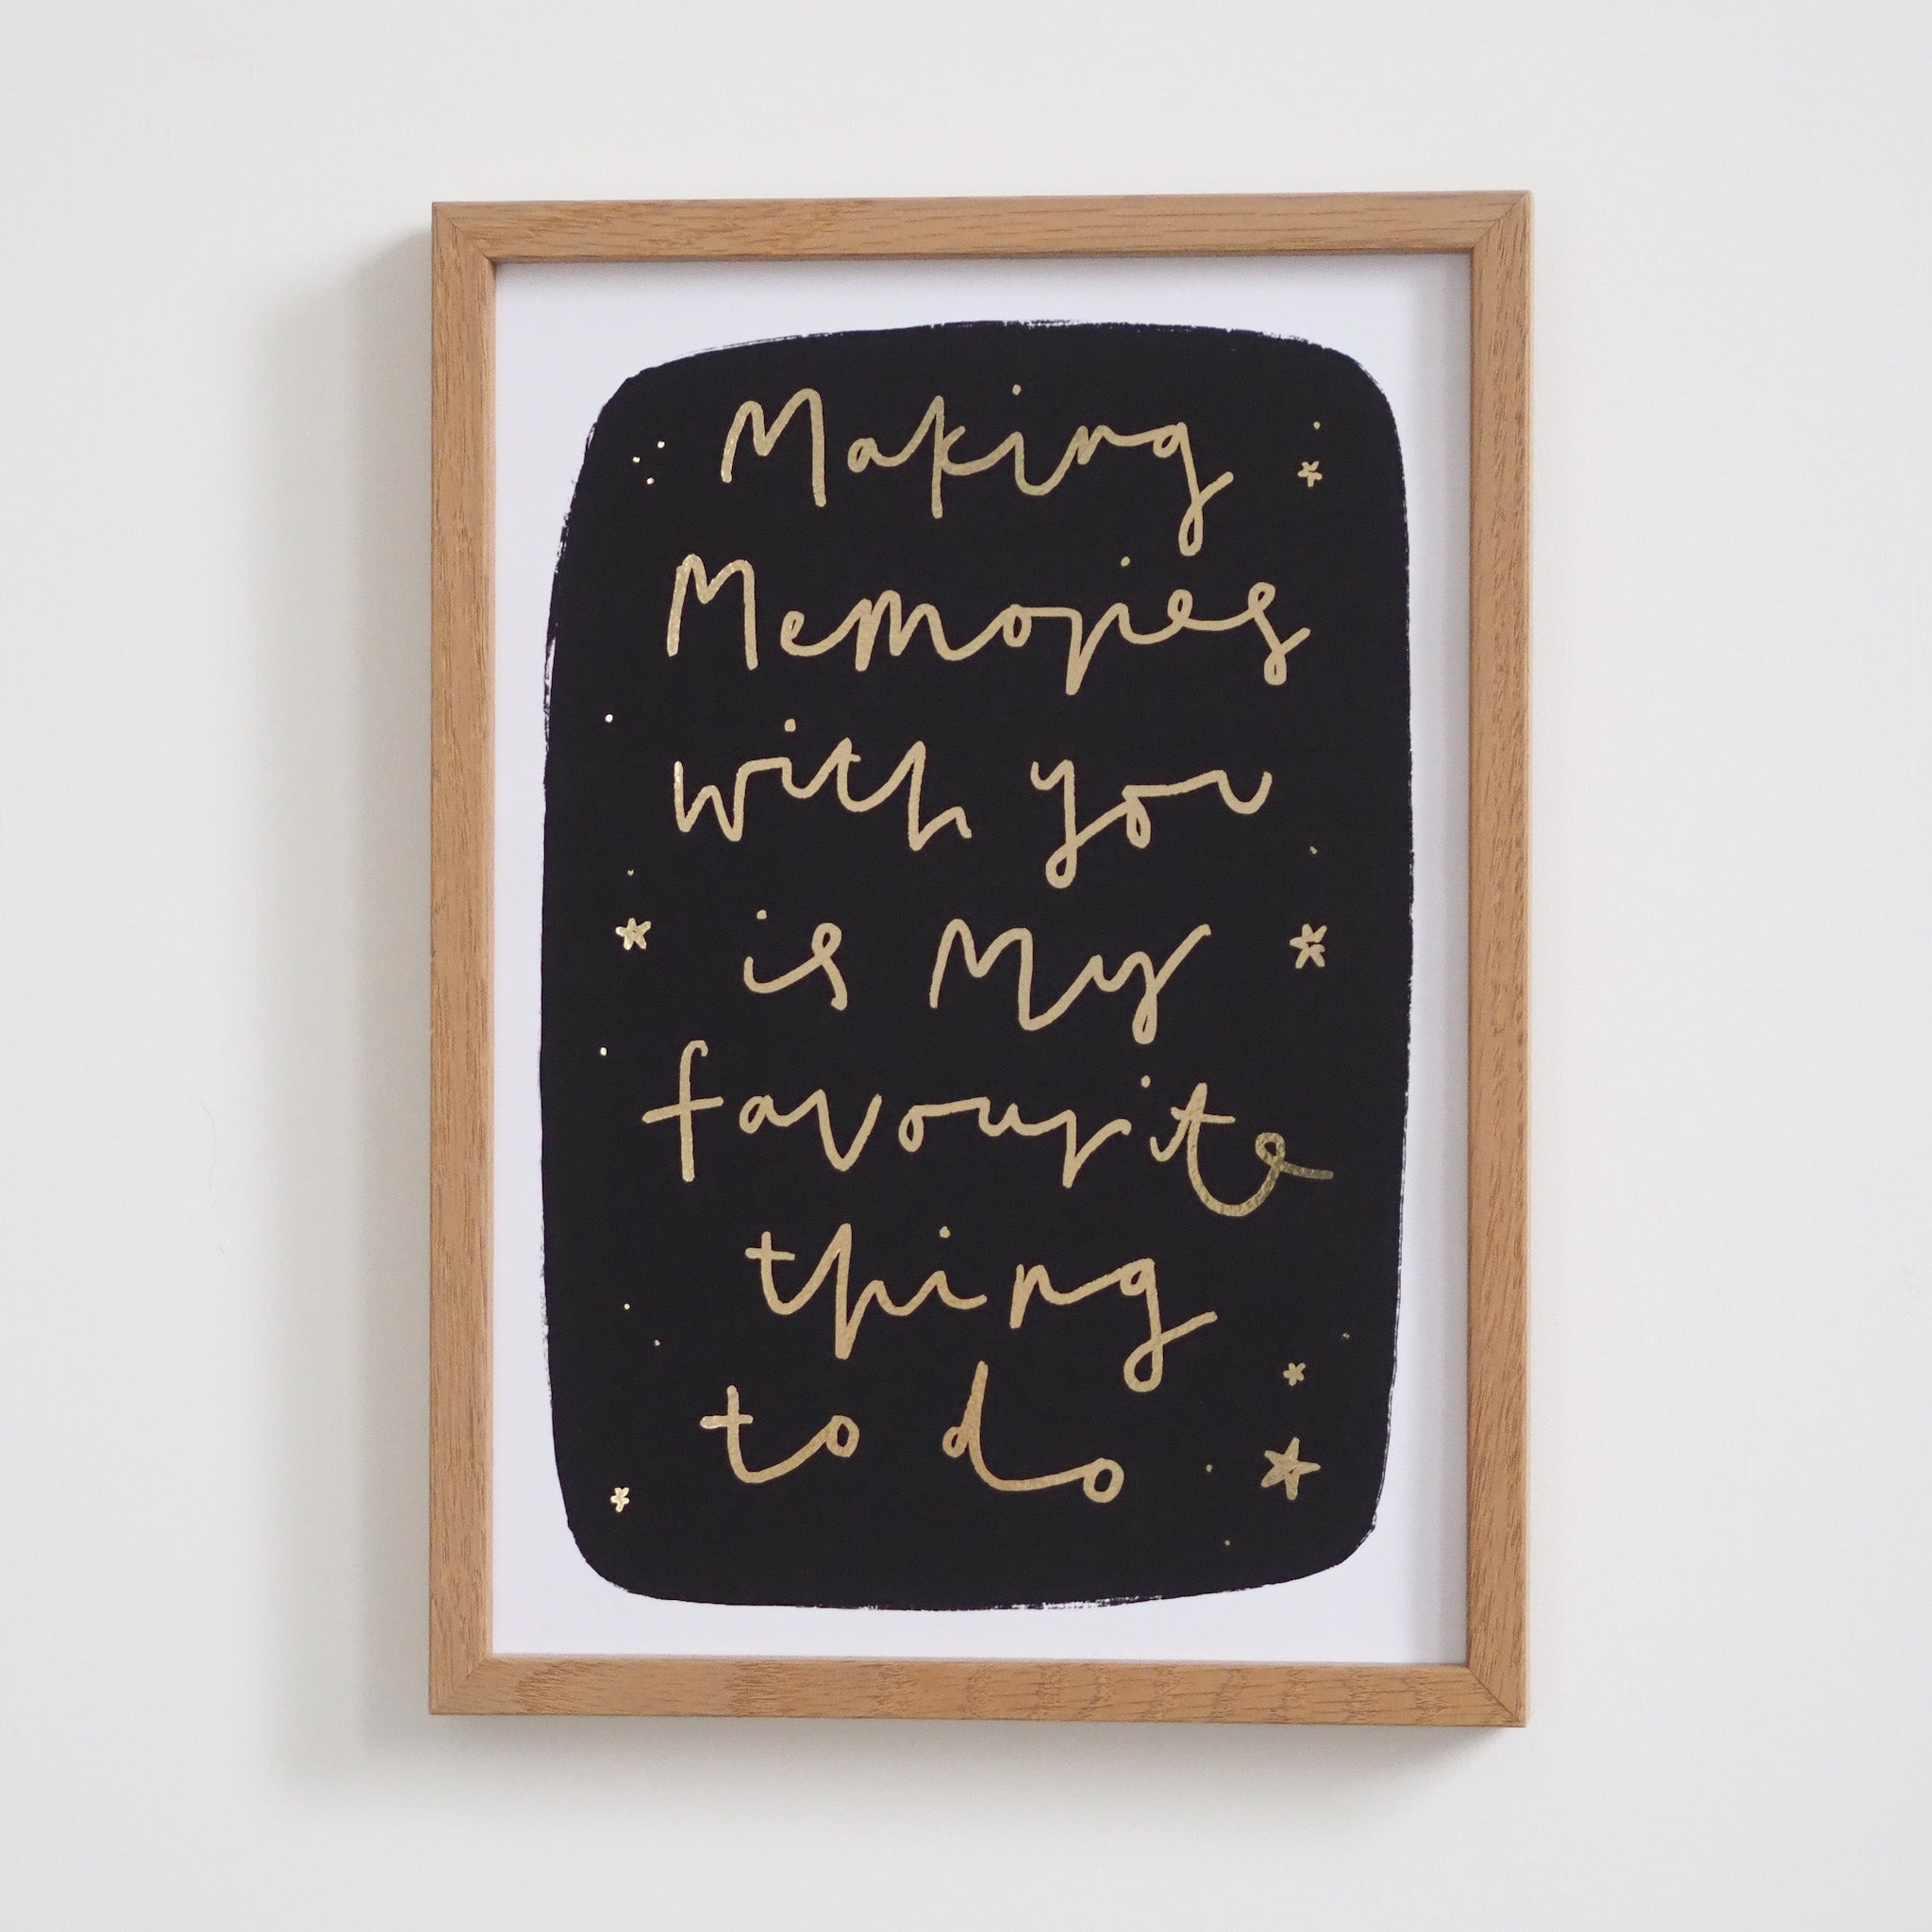 Making
Memories
with you
is My
favourite
thing
to do